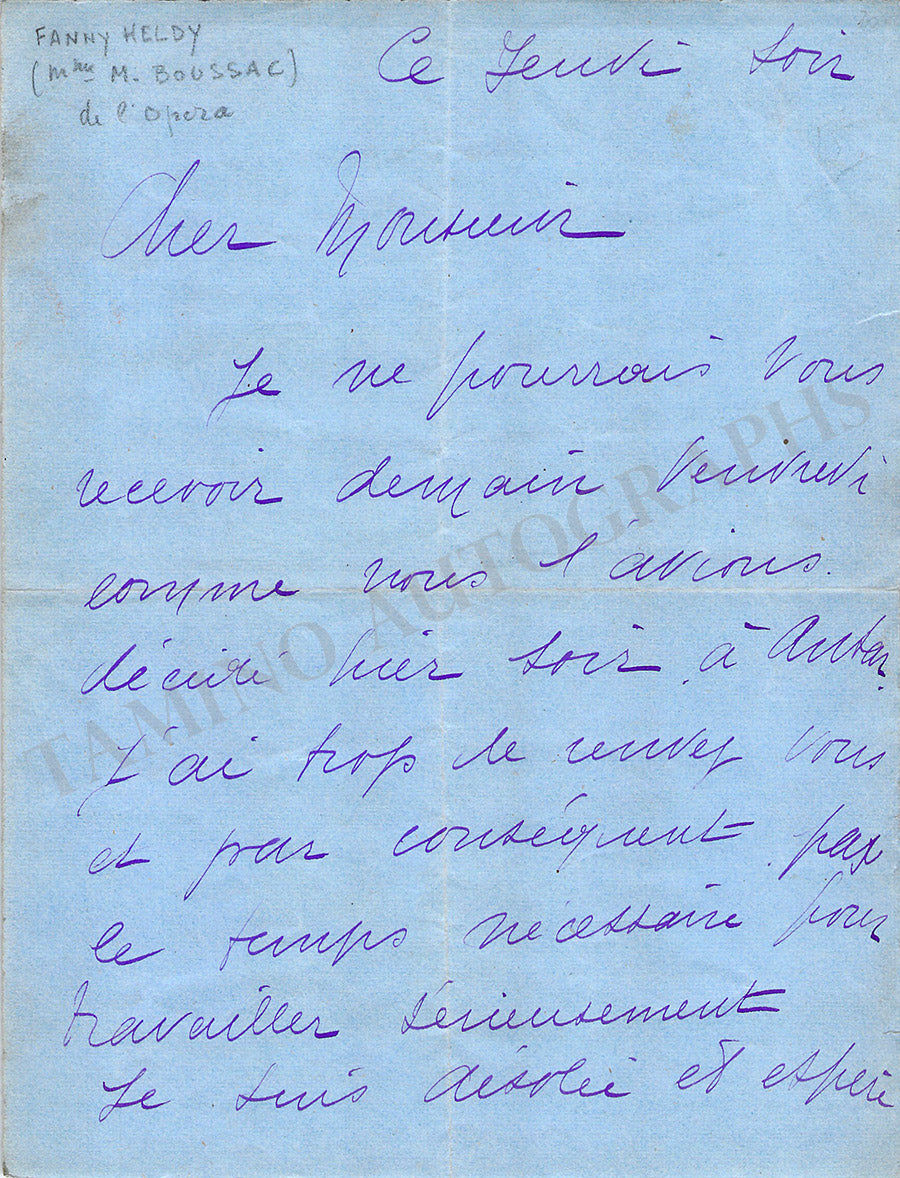 FANNY HELDY
(Mme M. BOUSSAC)
de l'Opera
Ce Jeudi soir
Cher Monsieur
Je ne pourrais vous
recevoir demain Vendredi
comme nous l'avions.
décidé hier soir à Antar.
J'ai trop de rendez vous
et par conséquent pas
le temps nécessaire pour
travailler sérieusement
Je suis désolée et espère
TAMINO AUTOGRAPHS